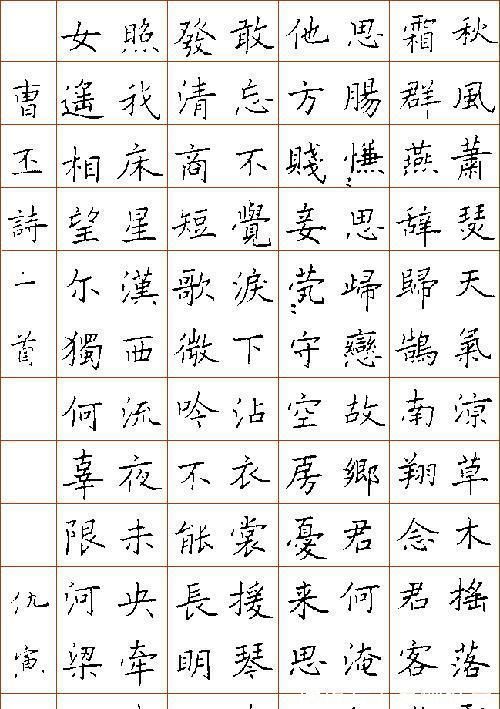 秋風蕭瑟天氣涼草木搖落
霜群燕辭歸鵠南翔念君客
思腸慊〻思歸戀故鄉君何淹
他方賤妾煢〻守空房憂来思
敢忘不覺淚下沾衣裳援琴
發清商短歌微吟不能長明
照我床星漢西流夜未央牽
女遙相望尔獨何辜限河梁
曹丕詩二首
仇寅